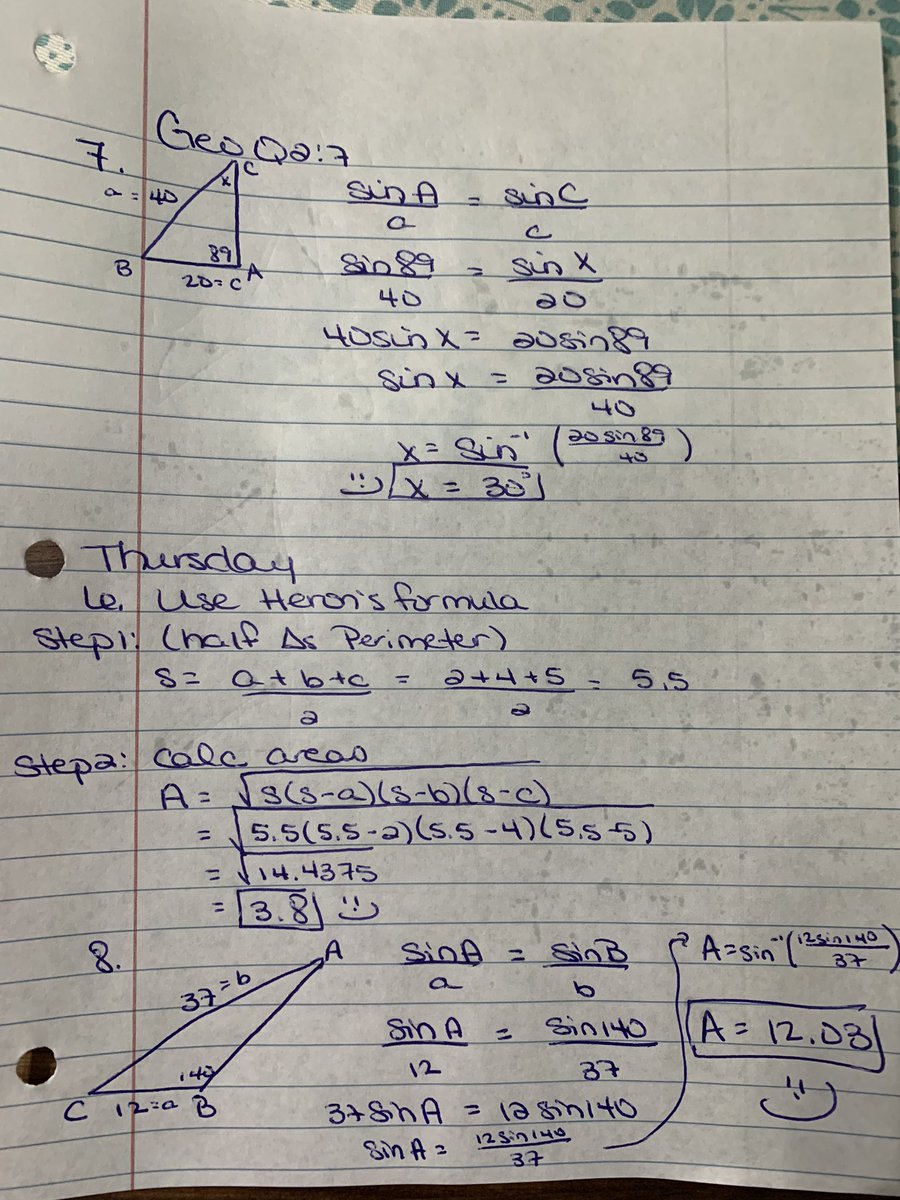 Geo Q2:7
7.
C
x
a = 40
89
B
A
20=c
sinA/a = sinC/c
sin89/40 = sinx/20
40sinx = 20sin89
sinx = 20sin89/40
x = sin⁻¹(20sin89/40)
x = 30°
Thursday
1e. Use Heron's formula
Step1: (half Δs Perimeter)
s = a+b+c/2 = 2+4+5/2 = 5.5
Step2: calc areas
A = √s(s-a)(s-b)(s-c)
= √5.5(5.5-2)(5.5-4)(5.5-5)
= √14.4375
= 3.8
8.
A
37=b
140
C
12=a
B
sinA/a = sinB/b
sinA/12 = sin140/37
37sinA = 12sin140
sinA = 12sin140/37
A=sin⁻¹(12sin140/37)
A = 12.03